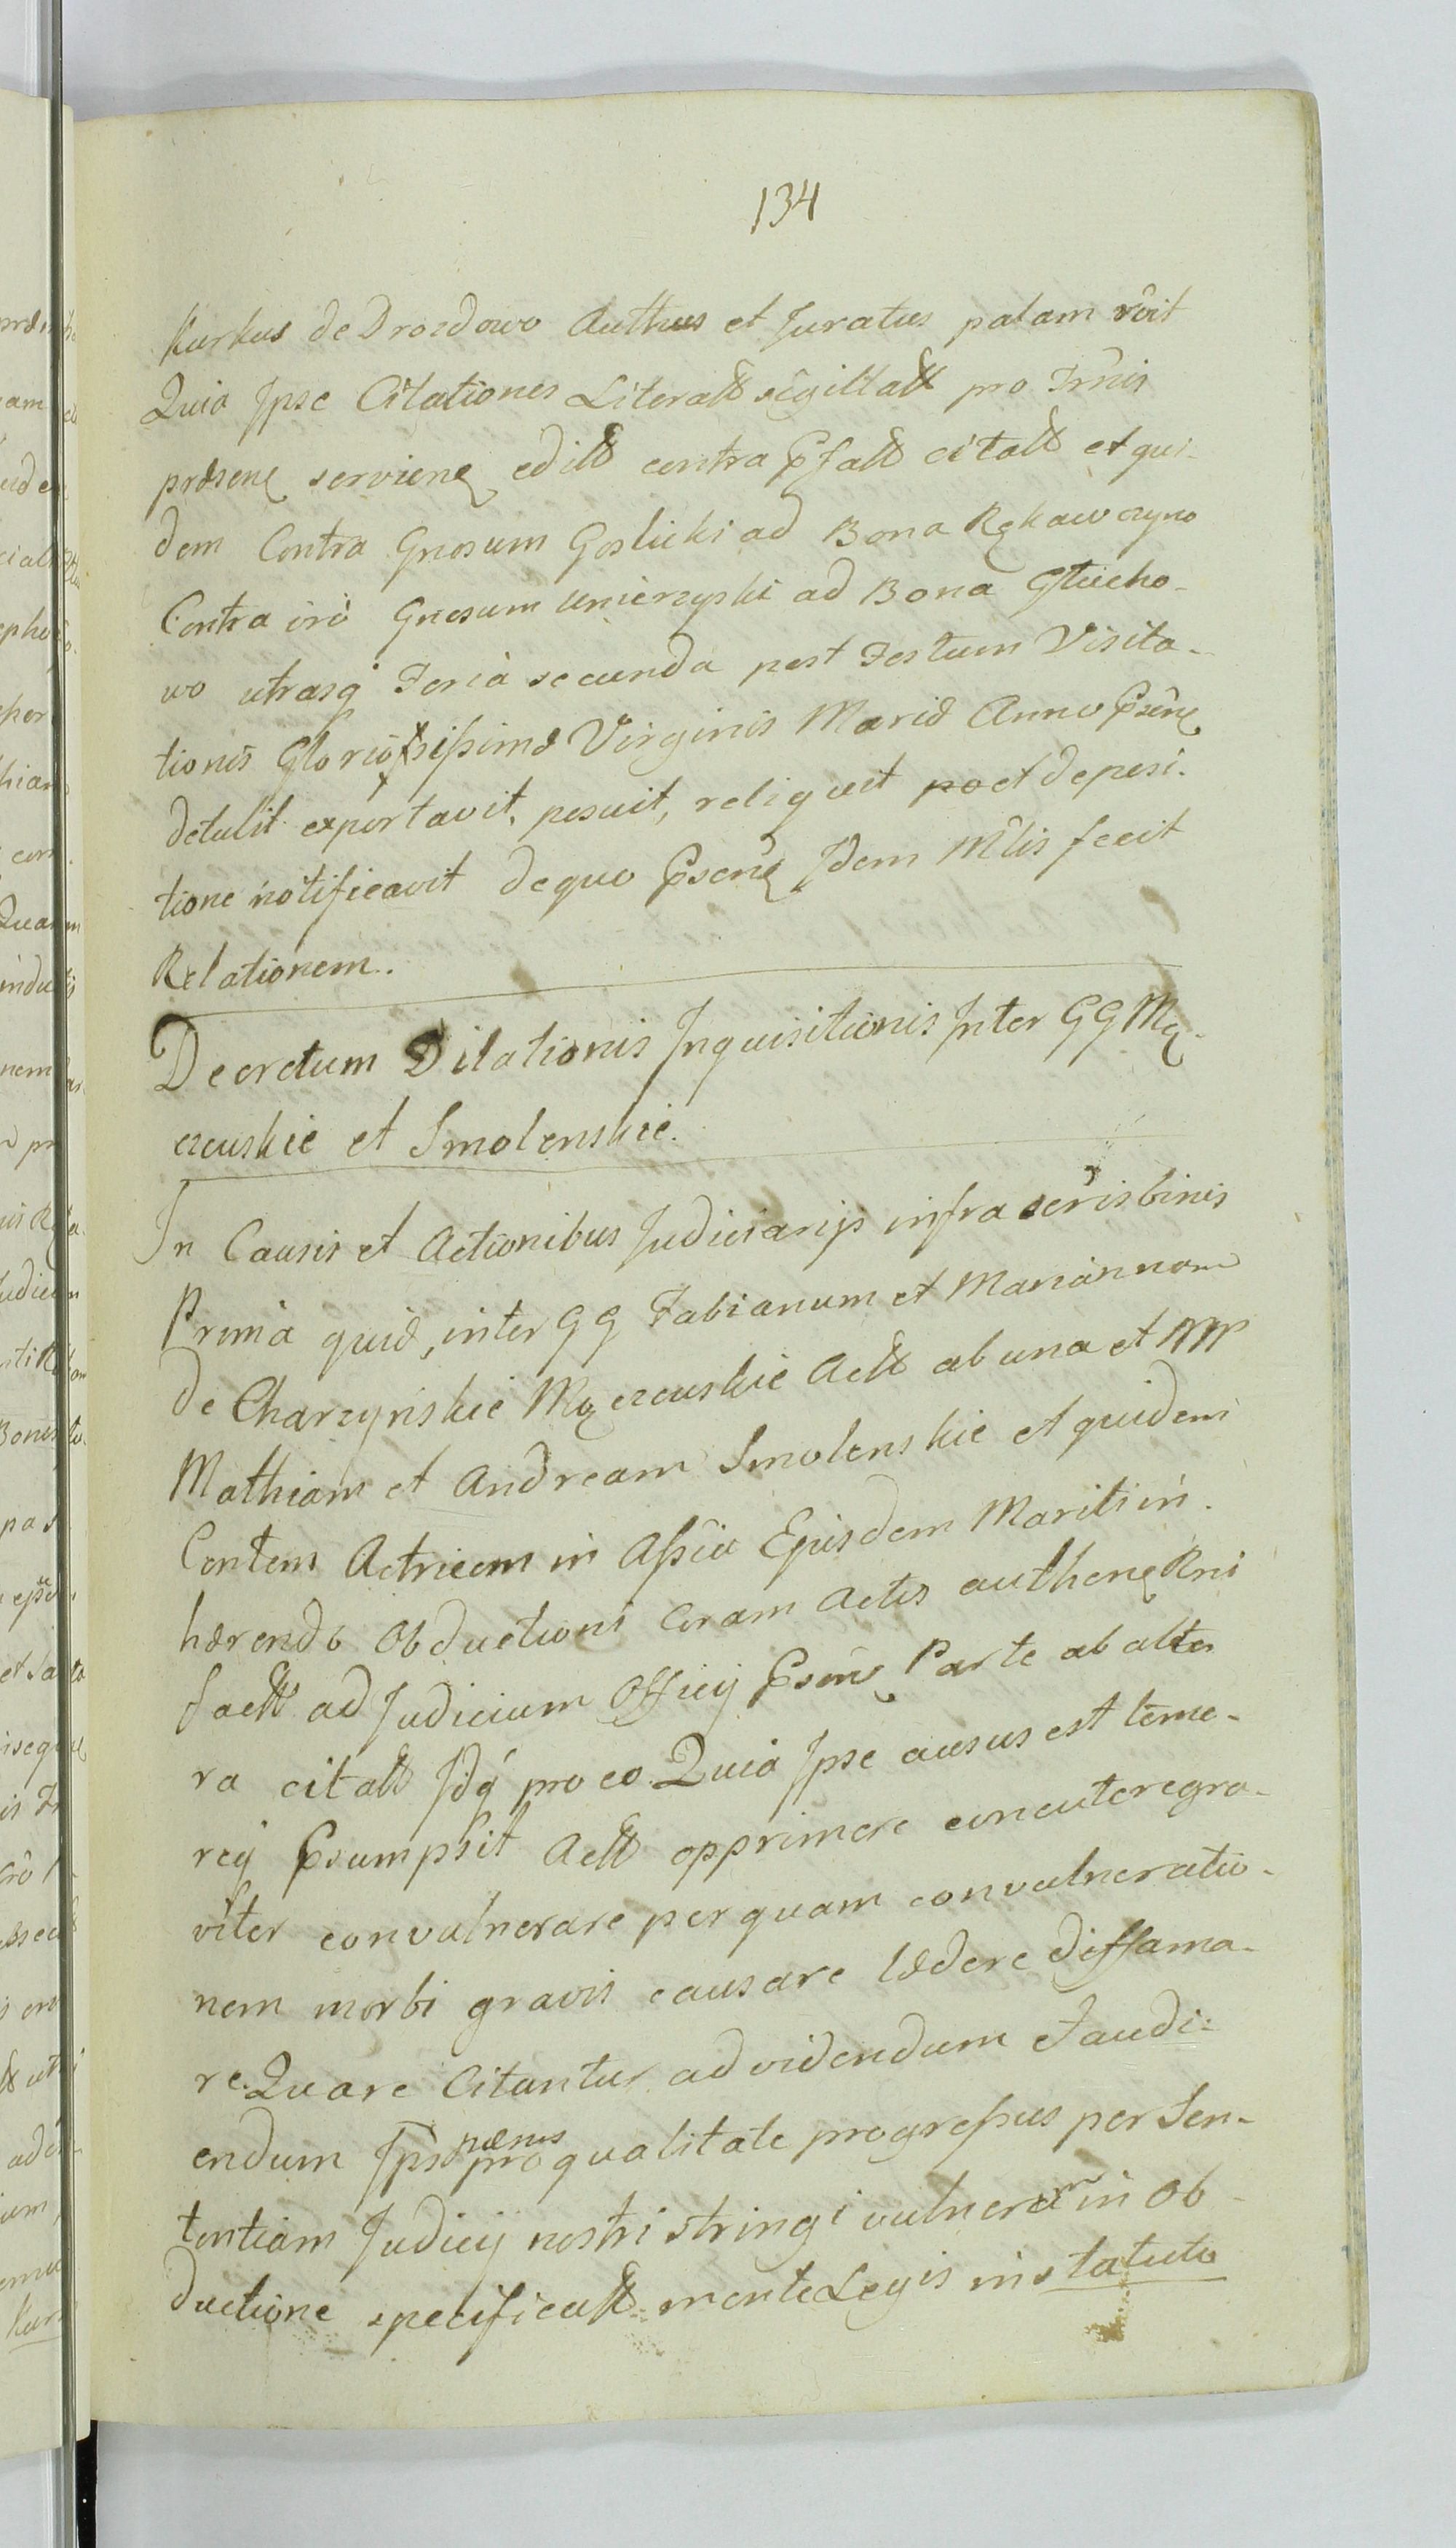 134
Kurkus de Drozdowo Authus et Juratus palam rôit
Quia Ipse Citationes Literałł sigillałł pro Trnîs
præsenę servienę ediłł contra Prsałł citałł et qui-
dem Contra Gnosum Goslicki ad Bona Rękawczyno
Contra vrô Gnosum Unierzyski ad Bona Głucho-
wo utrasq Feria secunda post Festum Visita-
tionis Gloriosissimæ Virginis Mariæ Anno Prsenę
detulit exportavit, posuit, reliquit po et deposi-
tione notificavit de quo Prsenę Idem Mlis fecit
Relationem.
Decretum Dilationis Inquisitionis Inter GG Mą-
czewskie et Smolenskie.
In Causis et Actionibus Judiciarijs infra scrîs binis
Prima quid, inter GG Fabianum et Mariannam
de Charzynskie Mączewskie Acłł ab una et
Mathiam et Andream Smolenskie et quidem
Contem Actricem in Assîa Ejusdem Mariti in-
hærendo Obductioni Coram Actis authenę Rni
facłł ad Judicium Officij Prsenę Parte ab alte-
ra citałł Idq pro eo Quia Ipse ausus est teme-
rej Prsumpsit Acłł opprimere concutere gra-
viter convulnerare per quam convulneratio-
nem morbi gravis causare lædere diffama-
re. Quare Citantur ad videndum et audi-
endum Ipsô pænis pro qualitate progressus per Sen-
tentiam Judicij nostri stringi vulnerum in Ob-
ductione specificałł mente Legis in statuto